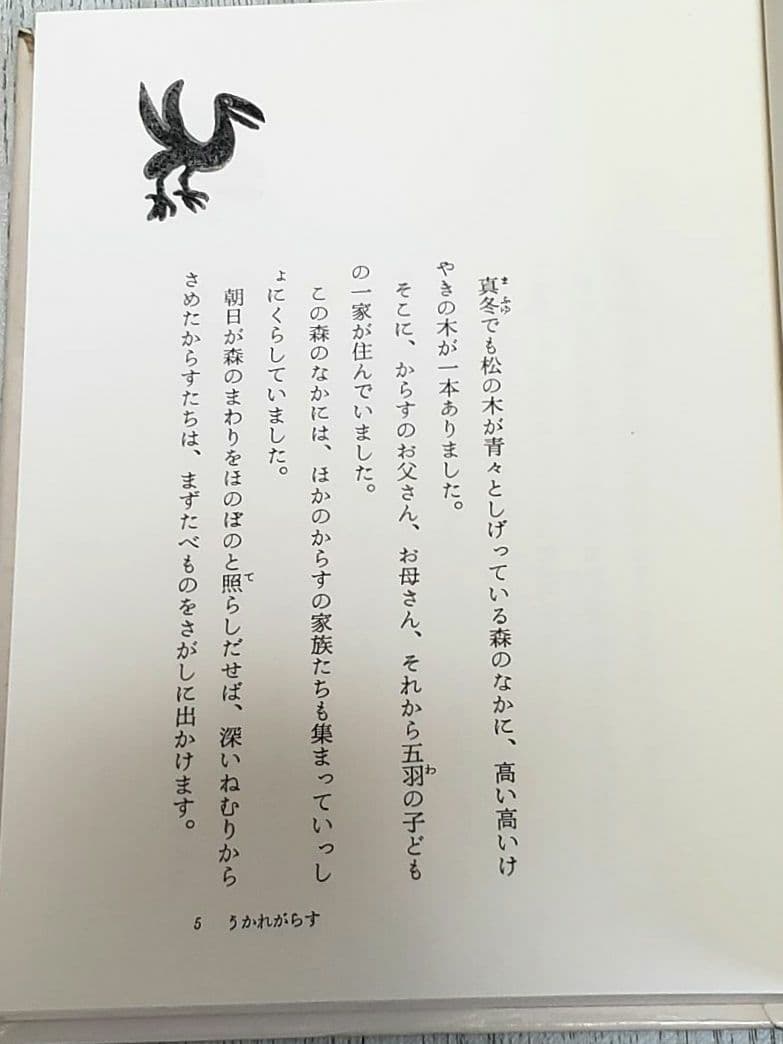 真冬でも松の木が青々としげっている森のなかに、高い高いけ
まふゆ
やきの木が一本ありました。
そこに、からすのお父さん、お母さん、それから五羽の子ども
わ
の一家が住んでいました。
この森のなかには、ほかのからすの家族たちも集まっていっし
ょにくらしていました。
朝日が森のまわりをほのぼのと照らしだせば、深いねむりから
て
さめたからすたちは、まずたべものをさがしに出かけます。
5 うかれがらす